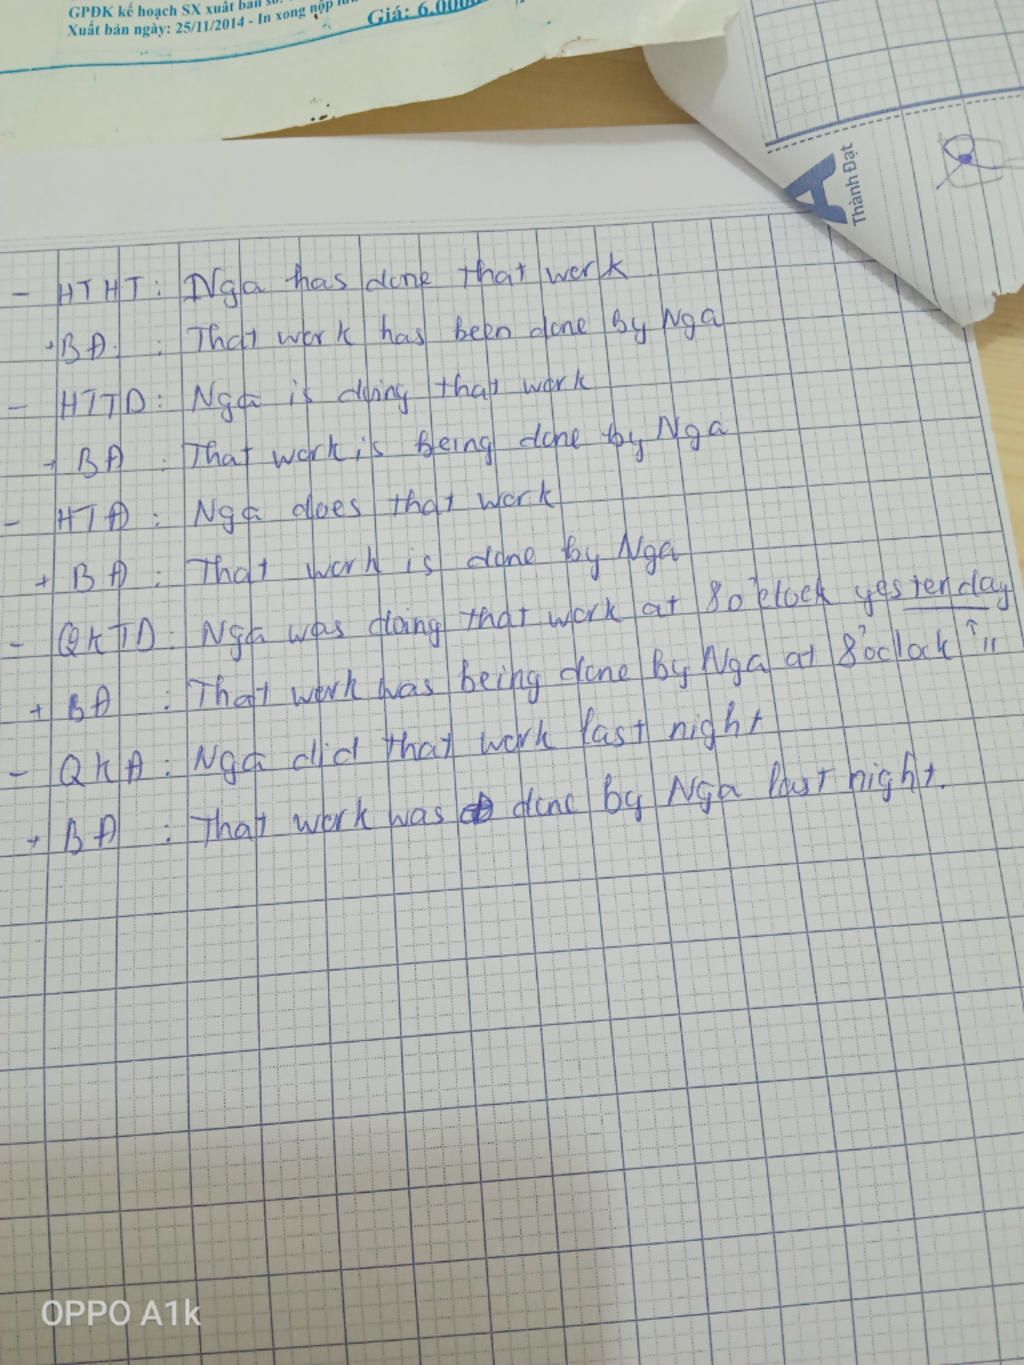 GPĐK kế hoạch SX xuất bản số:
Xuất bản ngày: 25/11/2014 - In xong nộp
Giá: 6.000
A
Thành Đạt
- HTHT: Nga has done that work
+ BĐ: That work has been done by Nga
- HTTD: Nga is doing that work
+ BĐ: That work is being done by Nga
- HTĐ: Nga does that work
+ BĐ: That work is done by Nga
- QKTD: Nga was doing that work at 8 o'clock yesterday
+ BĐ: That work was being done by Nga at 8 o'clock "
- QKĐ: Nga did that work last night
+ BĐ: That work was done by Nga last night.
OPPO A1k